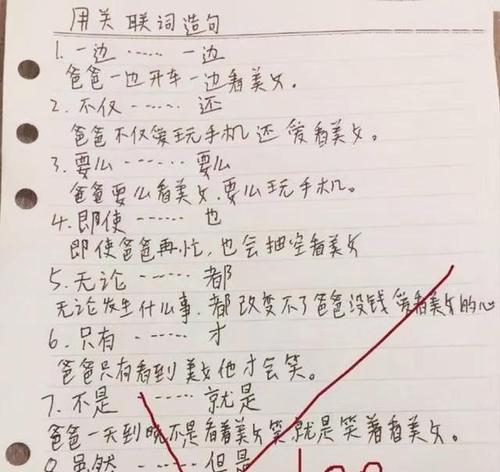 用关联词造句
1. 一边 ······ 一边
爸爸一边开车一边看美女。
2. 不仅 ······ 还
爸爸不仅爱玩手机还爱看美女。
3. 要么 ······ 要么
爸爸要么看美女，要么玩手机。
4. 即使 ······ 也
即使爸爸再忙，也会抽空看美女
5. 无论 ······ 都
无论发生什么事，都改变不了爸爸没钱爱看美女的心
6. 只有 ······ 才
爸爸只有看到美女他才会笑。
7. 不是 ······ 就是
爸爸一天到晚不是看着美女笑就是笑着看美女。
8. 虽然 ······ 但是